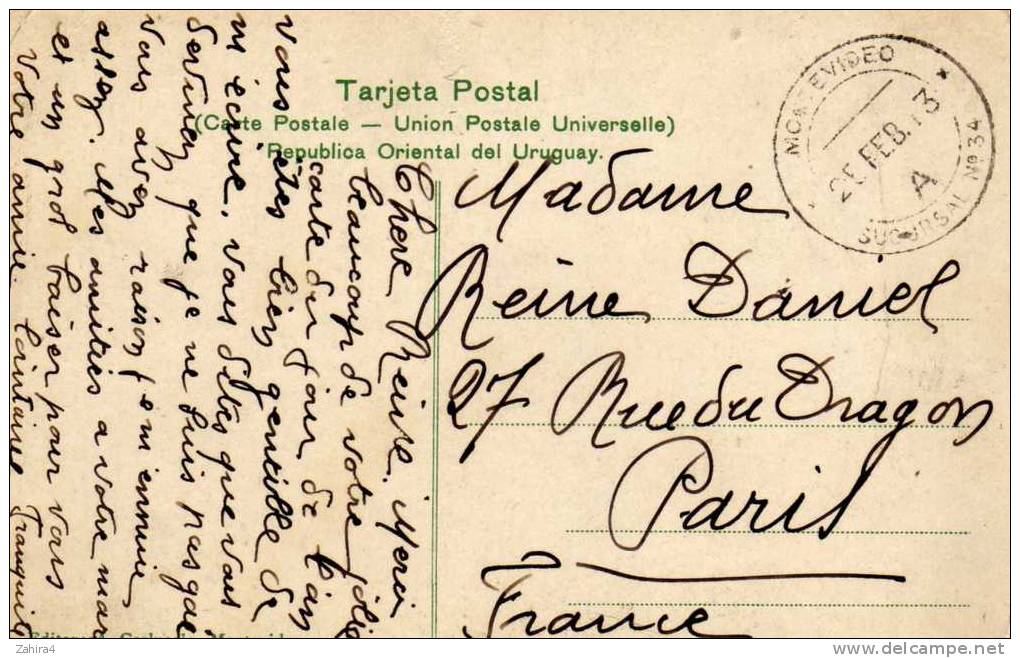 Tarjeta Postal
(Carte Postale — Union Postale Universelle)
Republica Oriental del Uruguay.
MONTEVIDEO
FEB. 13
A
SUCURSAL Nº 34
Madame
Reine Daniel
27 Rue du Dragon
Paris
France
Chere Reine. Merci
beaucoup de votre jolie
carte du jour de l'an
vous êtes bien gentille de
m'écrire. Vous dites que vous
que je ne suis pas gai
vous avez raison je m'ennuie
assez. Mes amitiés a votre mar
et un gros baiser pour vous
Votre amie lointaine
Zahira4
delcampe.net